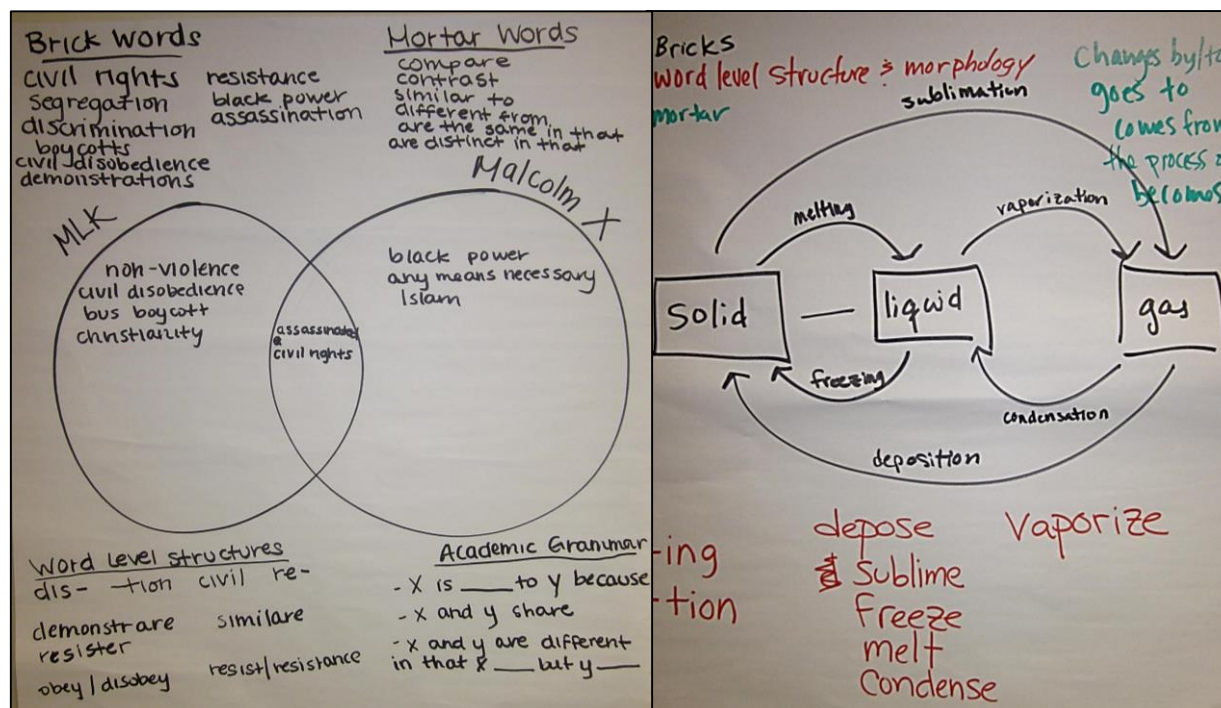 Brick Words
civil rights
segregation
discrimination
boycotts
civil disobedience
demonstrations
resistance
black power
assassination
Mortar Words
compare
contrast
similar to
different from
are the same in that
are distinct in that
MLK
non-violence
civil disobedience
bus boycott
christianity
assassinated
civil rights
Malcolm X
black power
any means necessary
Islam
Word Level Structures
dis- -tion civil re-
demonstrare similare
resister
obey / disobey resist/resistance
Academic Grammar
- X is ____ to y because
- X and y share
- X and y are different
in that x ___ but y ___
Bricks
word level structure & morphology
mortar
Changes by/to
goes to
comes from
the process
becomes
sublimation
melting
vaporization
Solid — liquid gas
freezing
condensation
deposition
-ing
-tion
depose
Sublime
freeze
melt
Condense
Vaporize